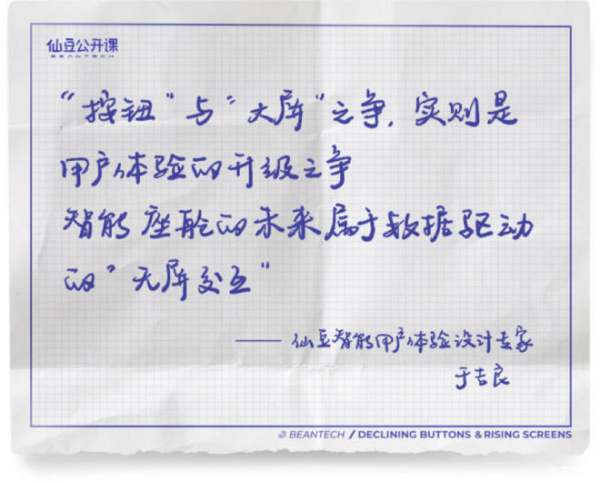 仙豆公开课
BEANTECH
“按钮”与“大屏”之争，实则是
用户体验的升级之争
智能座舱的未来属于数据驱动
的“无屏交互”
—— 仙豆智能用户体验设计专家
于吉良
BEANTECH / DECLINING BUTTONS & RISING SCREENS